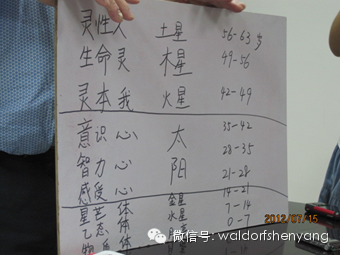 灵性人 土星 56-63岁
生命灵 木星 49-56
灵本我 火星 42-49
意识心 太 35-42
智力心 阳 28-35
感受心 21-28
星芒体 金星 14-21
乙态体 水星 7-14
体 0-7
2012/07/15
微信号: waldorfshenyang